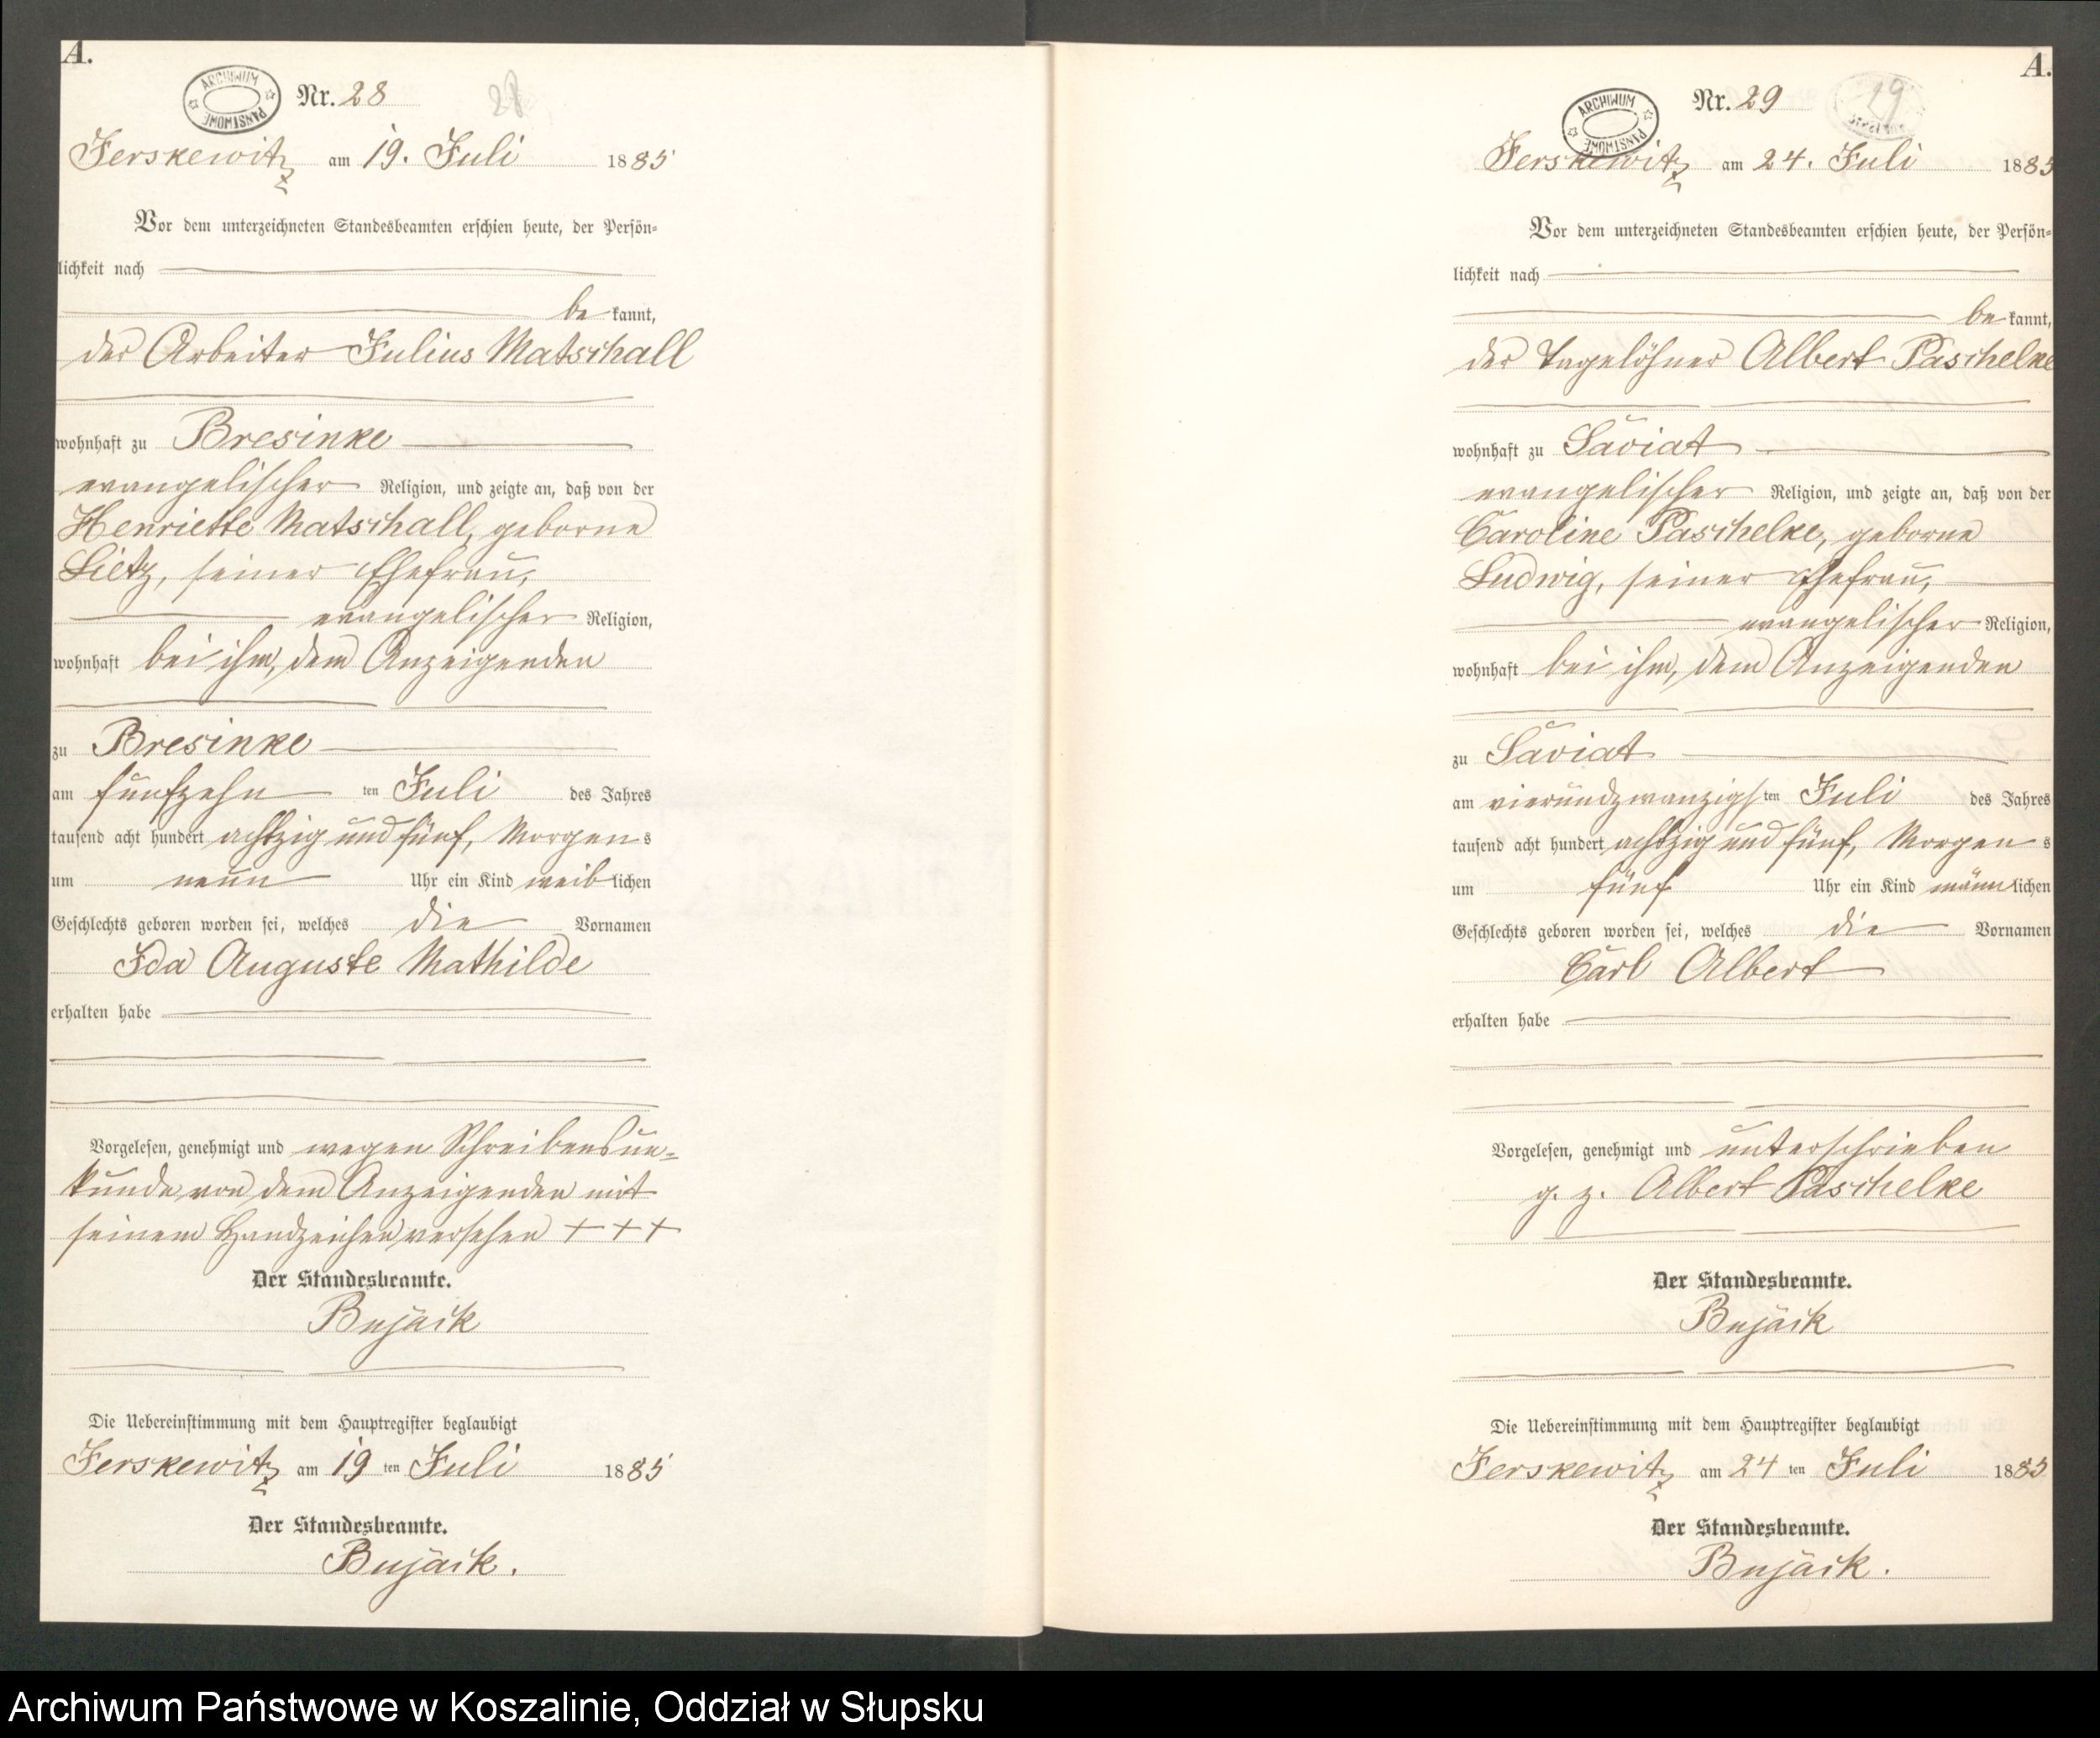 A.
ARCHIWUM PAŃSTWOWE
Nr. 28
28
Jerskewitz am 19. Juli 1885
Vor dem unterzeichneten Standesbeamten erschien heute, der Persön-
lichkeit nach
be kannt,
der Arbeiter Julius Matschall
wohnhaft zu Bresinke
evangelischer Religion, und zeigte an, daß von der
Henriette Matschall, geborne
Lietz, seiner Ehefrau,
evangelischer Religion,
wohnhaft bei ihm, dem Anzeigenden
zu Bresinke
am fünfzehn ten Juli des Jahres
tausend acht hundert achtzig und fünf, Morgens
um neun Uhr ein Kind weiblichen
Geschlechts geboren worden sei, welches die Vornamen
Ida Auguste Mathilde
erhalten habe
Vorgelesen, genehmigt und wegen Schreibensun-
kunde von dem Anzeigenden mit
seinem Handzeichen versehen + + +
Der Standesbeamte.
Bujack
Die Uebereinstimmung mit dem Hauptregister beglaubigt
Jerskewitz am 19 ten Juli 1885
Der Standesbeamte.
Bujack.
A.
ARCHIWUM PAŃSTWOWE
Nr. 29
29
Jerskewitz am 24. Juli 1885
Vor dem unterzeichneten Standesbeamten erschien heute, der Persön-
lichkeit nach
be kannt,
der Tagelöhner Albert Paschelke
wohnhaft zu Saviat
evangelischer Religion, und zeigte an, daß von der
Caroline Paschelke, geborne
Ludwig, seiner Ehefrau,
evangelischer Religion,
wohnhaft bei ihm, dem Anzeigenden
zu Saviat
am vierundzwanzigsten Juli des Jahres
tausend acht hundert achtzig und fünf, Morgens
um fünf Uhr ein Kind männlichen
Geschlechts geboren worden sei, welches die Vornamen
Carl Albert
erhalten habe
Vorgelesen, genehmigt und unterschrieben
g. z. Albert Paschelke
Der Standesbeamte.
Bujack
Die Uebereinstimmung mit dem Hauptregister beglaubigt
Jerskewitz am 24 ten Juli 1885
Der Standesbeamte.
Bujack.
Archiwum Państwowe w Koszalinie, Oddział w Słupsku